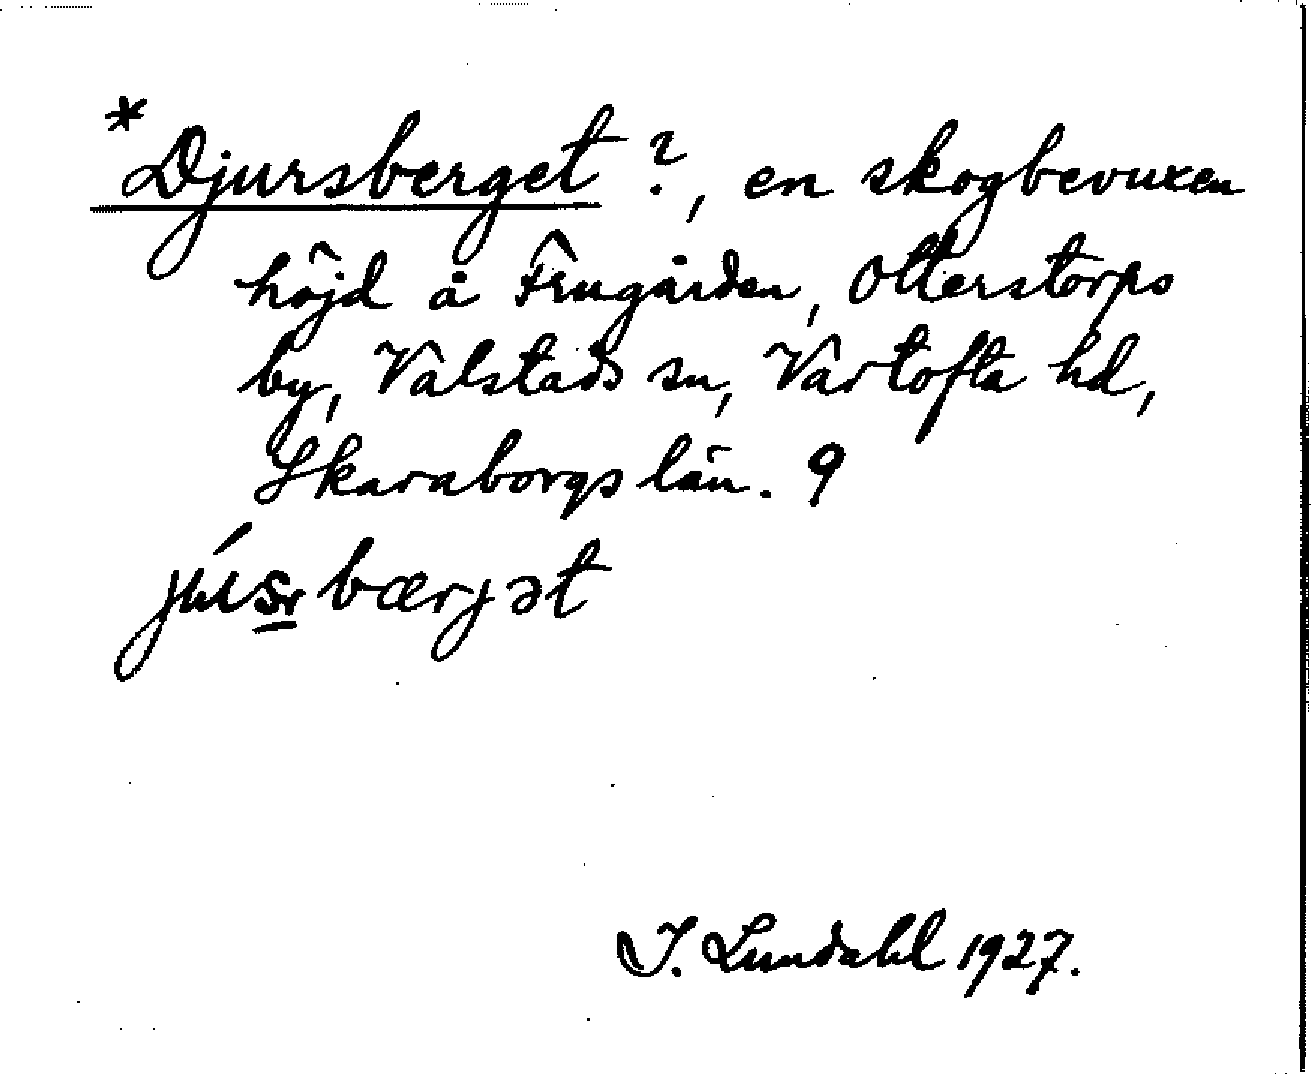 *Djursberget ?, en skogbevuxen
höjd å Frugården, Otterstorps
by, Vålstads sn, Vartofta hd,
Skaraborgs län. 9
bærjət
J. Lundahl 1927.